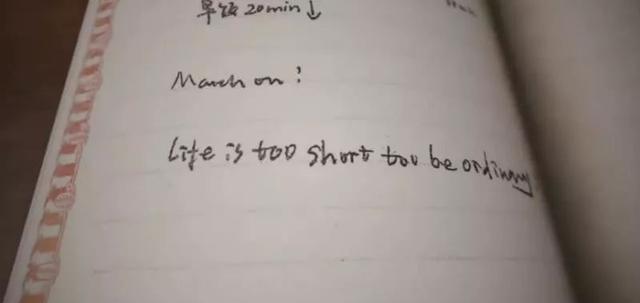 早饭 20min↓
March on!
Life is too short too be ordinary